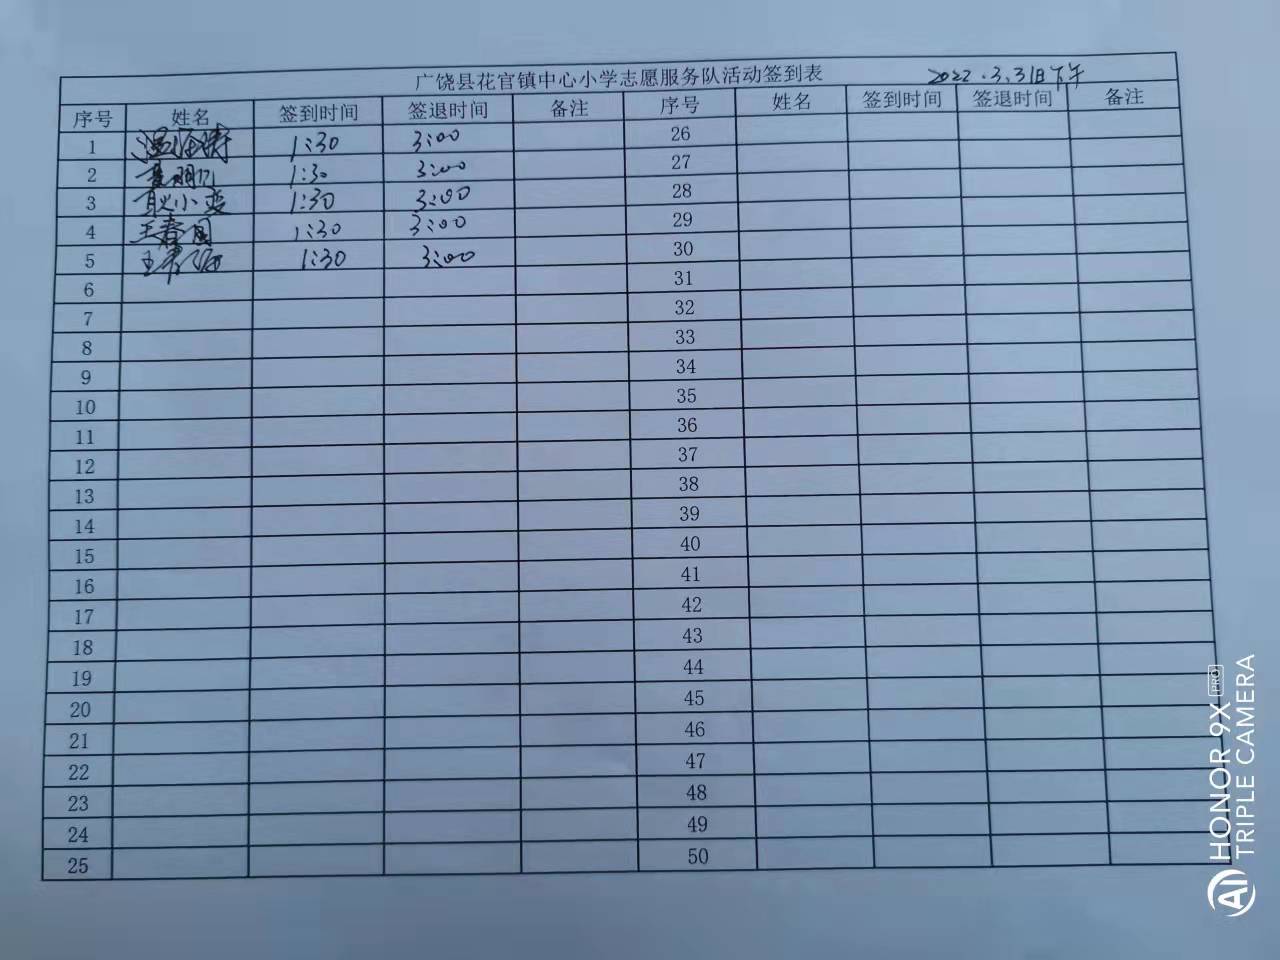 广饶县花官镇中心小学志愿服务队活动签到表 2022.3.31日下午
序号 姓名 签到时间 签退时间 备注 序号 姓名 签到时间 签退时间 备注
1 1:30 3:00 26
2 1:30 3:00 27
3 耿小变 1:30 3:00 28
4 王春国 1:30 3:00 29
5 王 1:30 3:00 30
6 31
7 32
8 33
9 34
10 35
11 36
12 37
13 38
14 39
15 40
16 41
17 42
18 43
19 44
20 45
21 46
22 47
23 48
24 49
25 50
AI HONOR 9X PRO
TRIPLE CAMERA